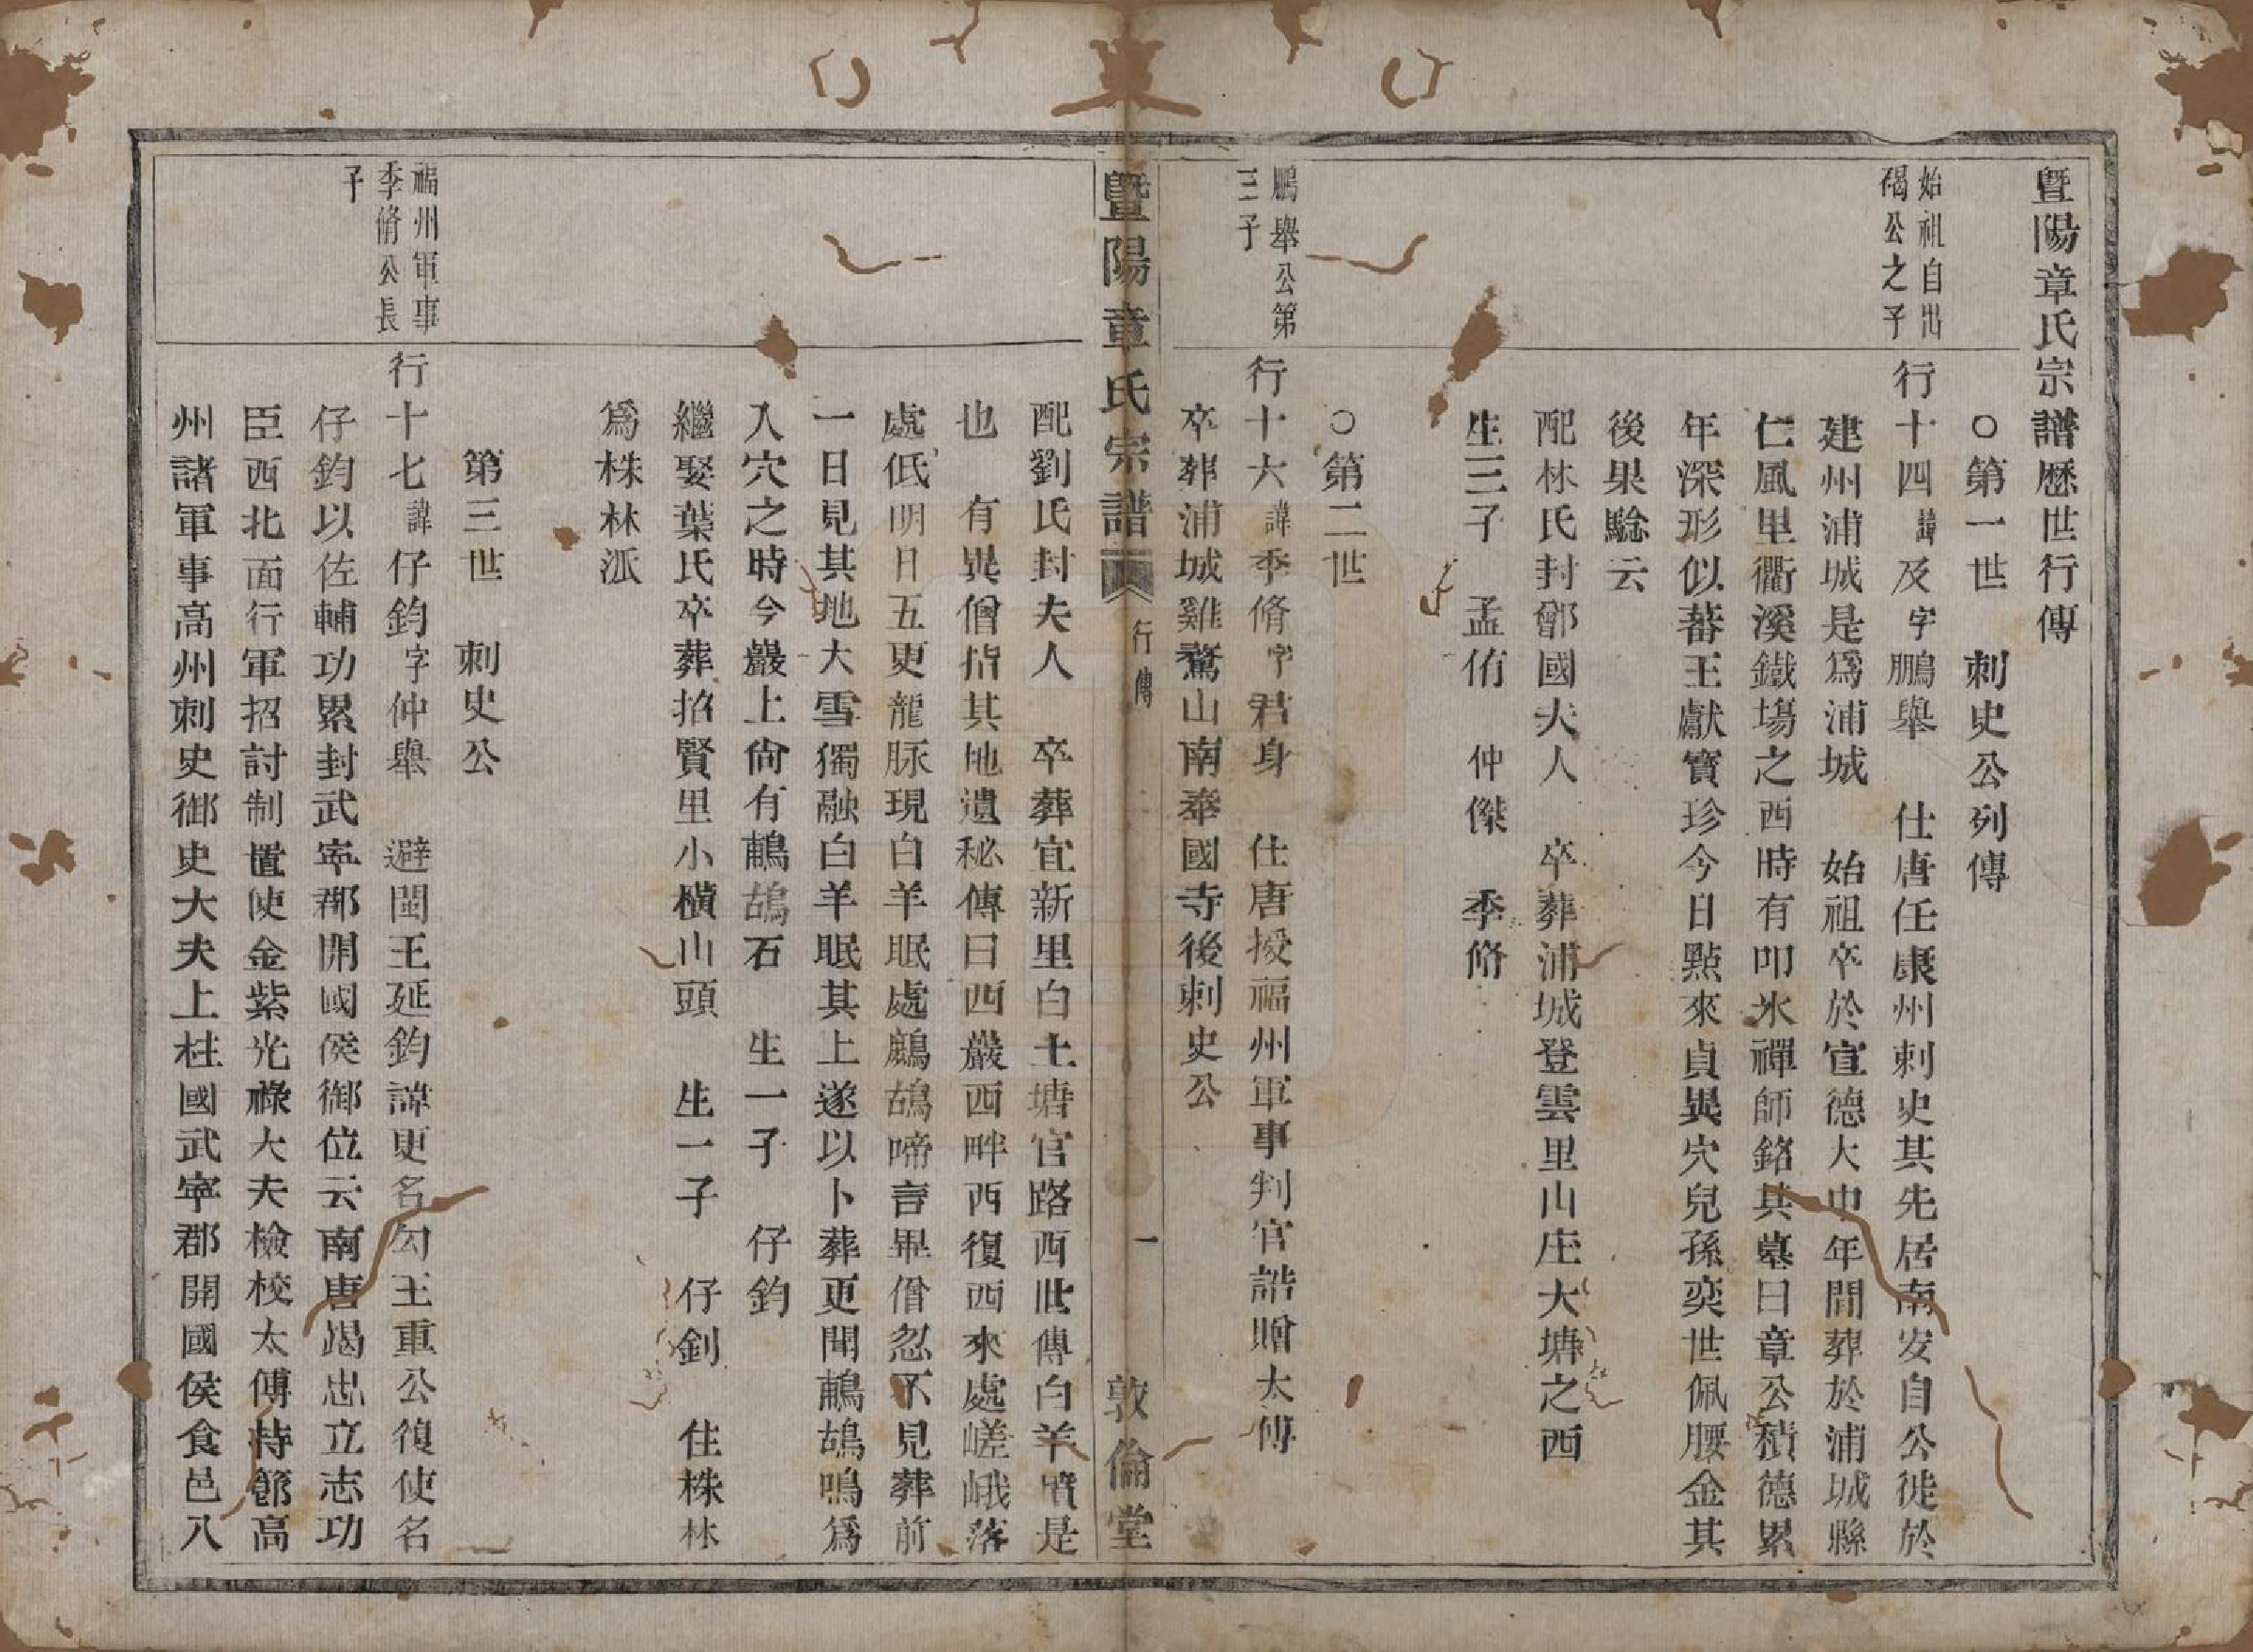 暨陽章氏宗譜歷世行傳
○第一世　刺史公列傳
始祖自出
碣公之子
行十四諱及字鵬舉　仕唐任康州刺史其先居南安自公徙於
建州浦城是爲浦城　始祖卒於宣德大中年間葬於浦城縣
仁風里衢溪鐵場之西時有叩氷禪師銘其墓曰章公積德累
年深形似蕃王獻寳珍今日點來貞異穴兒孫奕世佩腰金其
後果驗云
配林氏封鄮國夫人　卒葬浦城登雲里山庄大塘之西
生三子　孟侑　仲傑　季脩
○第二世
鵬舉公第
三子
行十六諱季脩字君身　仕唐授福州軍事判官誥贈太傅
卒葬浦城雞鶩山南奉國寺後刺史公
暨陽章氏宗譜　行傳　一　敦倫堂
配劉氏封夫人　卒葬宜新里白土塘官路西世傳白羊墳是
也　有異僧指其地遺秘傳曰西巖西畔西復西來處嵯峨落
處低明日五更龍脉現白羊眠處鷓鴣啼言畢僧忽不見葬前
一日見其地大雪獨融白羊眠其上遂以卜葬更聞鷓鴣鳴爲
入穴之時今巖上尙有鷓鴣石　生一子　仔鈞
繼娶葉氏卒葬招賢里小橫山頭　生一子　仔釗　住株林
爲株林派
第三世　刺史公
福州軍事
季脩公長
子
行十七諱仔鈞字仲舉　避閩王延鈞諱更名勾王重公復使名
仔鈞以佐輔功累封武寧郡開國侯御位云南唐竭忠立志功
臣西北面行軍招討制置使金紫光祿大夫檢校太傅持節高
州諸軍事高州刺史御史大夫上柱國武寧郡開國侯食邑八